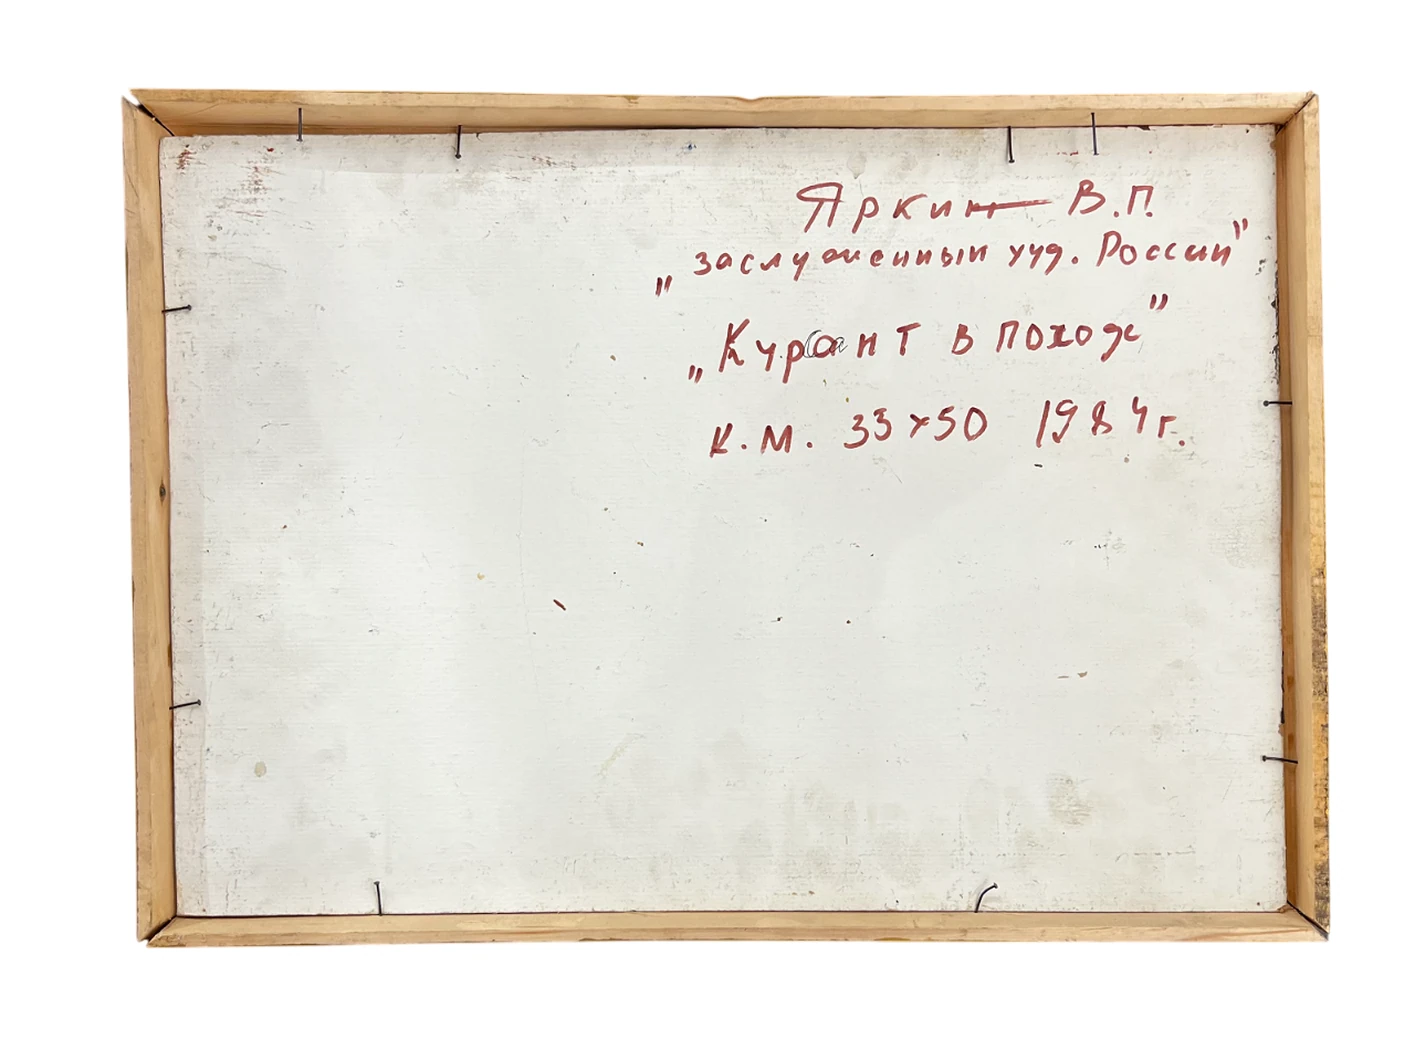 Яркин В.П.
„заслуженный худ. России”
„Курант в походе”
К.М. 33х50 1984г.